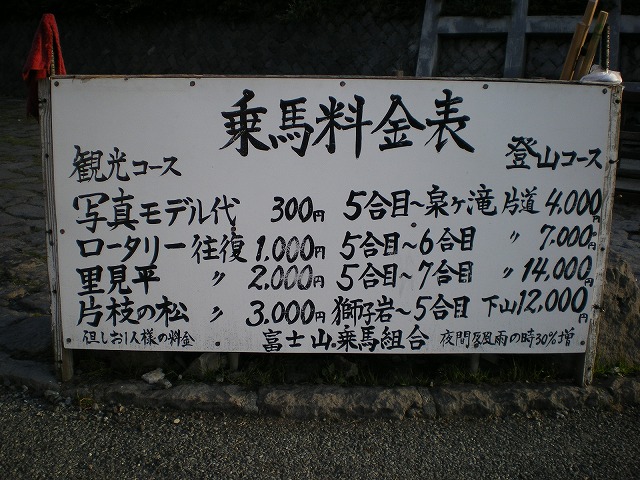 乗馬料金表
観光コース
写真モデル代 300円
ロータリー往復 1.000円
里見平 〃 2.000円
片枝の松 〃 3.000円
但しお1人様の料金
登山コース
5合目~泉ヶ滝片道 4.000円
5合目~6合目 〃 7.000円
5合目~7合目 〃 14,000円
獅子岩~5合目 下山12,000円
富士山乗馬組合
夜間及風雨の時30%増